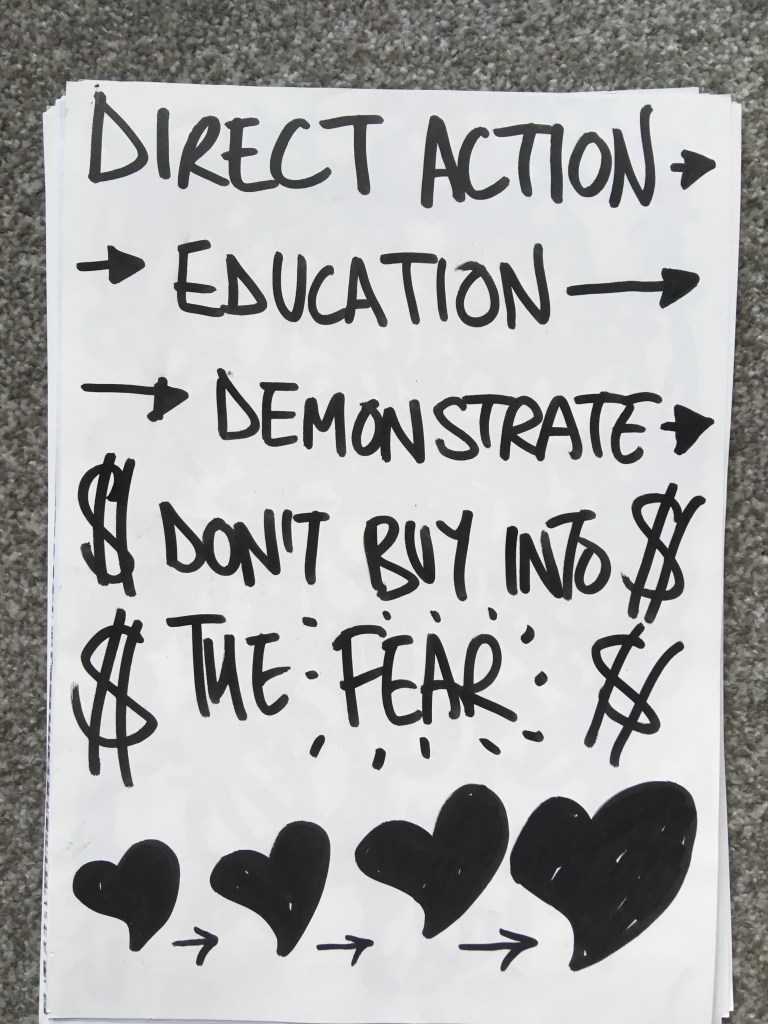 DIRECT ACTION →
→ EDUCATION →
→ DEMONSTRATE →
$ DON'T BUY INTO $
$ THE FEAR $